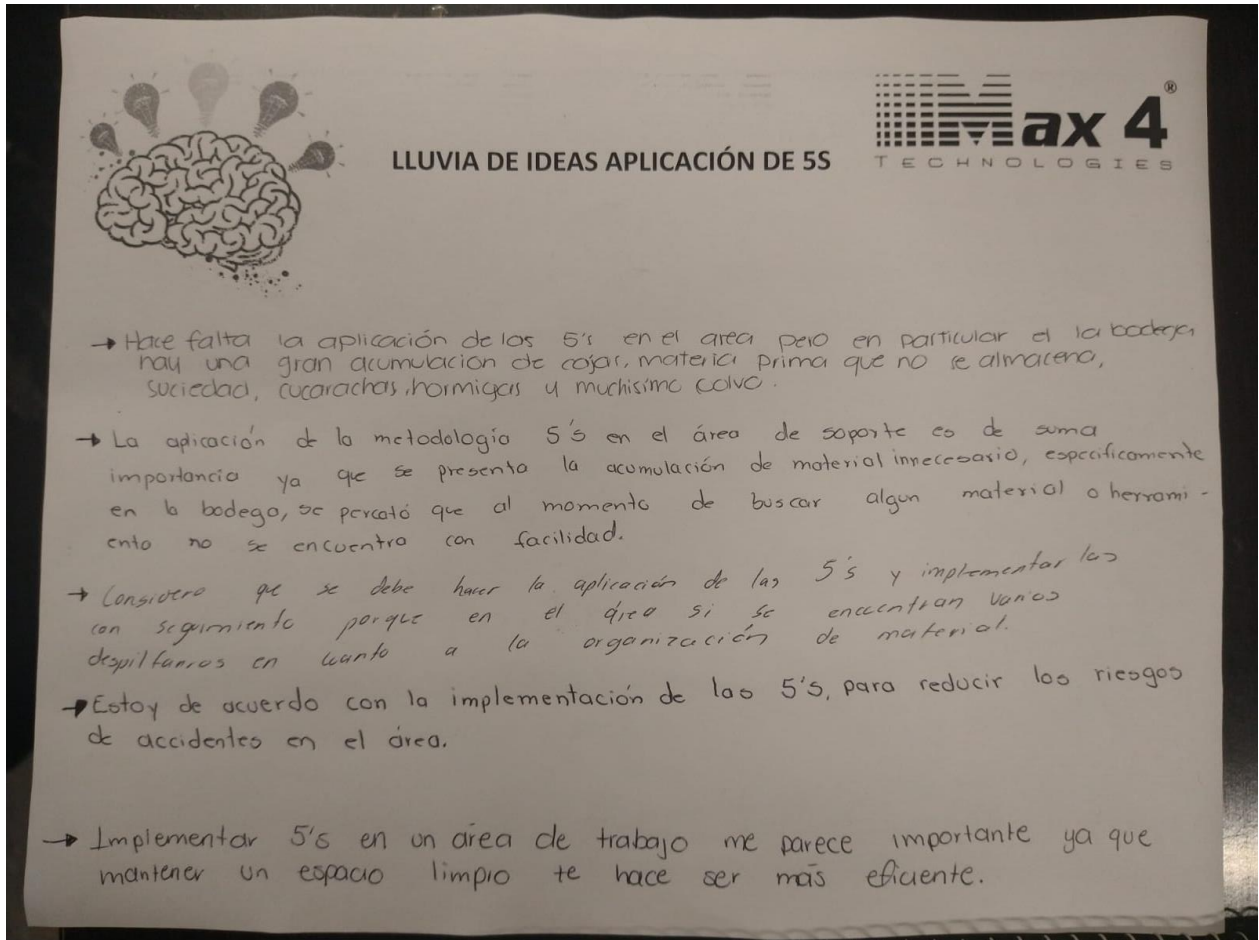 LLUVIA DE IDEAS APLICACIÓN DE 5S
Max 4®
TECHNOLOGIES
→ Hace falta la aplicación de las 5's en el area pero en particular el la bodega
hay una gran acumulacion de cajas, materia prima que no se almacena,
suciedad, cucarachas, hormigas y muchisimo polvo.
→ La aplicación de la metodología 5's en el área de soporte es de suma
importancia ya que se presenta la acumulación de material innecesario, específicamente
en la bodega, se percató que al momento de buscar algun material o herrami-
enta no se encuentra con facilidad.
→ Considero que se debe hacer la aplicación de las 5's y implementar las
con seguimiento porque en el área si se encuentran varios
despilfarros en cuanto a la organización de material.
→ Estoy de acuerdo con la implementación de las 5's, para reducir los riesgos
de accidentes en el área.
→ Implementar 5's en un área de trabajo me parece importante ya que
mantener un espacio limpio te hace ser más eficiente.